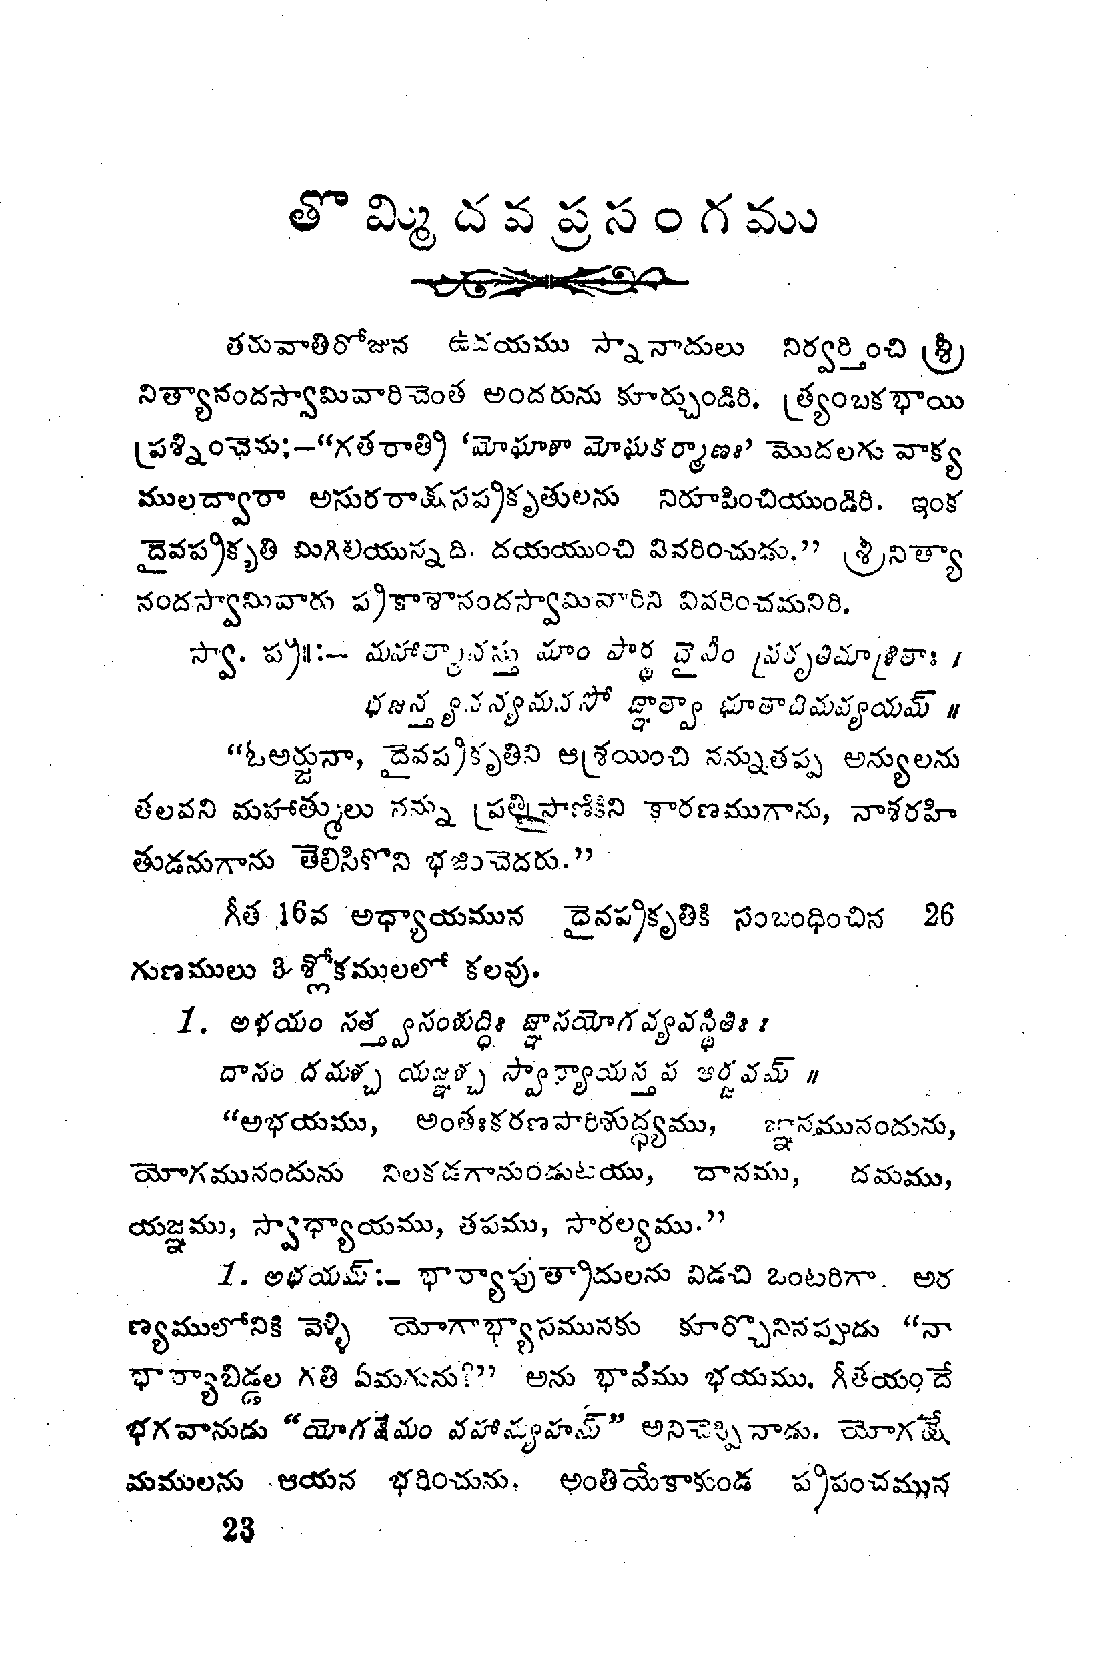 తొమ్మిదవ ప్రసంగము
తరువాతిరోజున ఉదయము స్నానాదులు నిర్వర్తించి శ్రీ
నిత్యానందస్వామివారిచెంత అందరును కూర్చుండిరి. త్ర్యంబకభాయి
ప్రశ్నించెను;–“గతరాత్రి ‘మోఘాశా మోఘకర్మాణః’ మొదలగు వాక్య
ములద్వారా అసురరాక్షసప్రకృతులను నిరూపించియుండిరి. ఇంక
దైవప్రకృతి మిగిలియున్నది. దయయుంచి వివరించుడు.” శ్రీనిత్యా
నందస్వామివారు ప్రకాశానందస్వామివారిని వివరించమనిరి.
స్వా. ప్ర॥:– మహాత్మానస్తు మాం పార్థ దైవీం ప్రకృతిమాశ్రితాః ।
భజన్త్యనన్యమనసో జ్ఞాత్వా భూతాదిమవ్యయమ్ ॥
“ఓఅర్జునా, దైవప్రకృతిని ఆశ్రయించి నన్నుతప్ప అన్యులను
తలవని మహాత్ములు నన్ను ప్రతిప్రాణికిని కారణముగాను, నాశరహి
తుడనుగాను తెలిసికొని భజించెదరు.”
గీత 16వ అధ్యాయమున దైవప్రకృతికి సంబంధించిన 26
గుణములు 3 శ్లోకములలో కలవు.
1. అభయం సత్త్వసంశుద్ధిః జ్ఞానయోగవ్యవస్థితిః ।
దానం దమశ్చ యజ్ఞశ్చ స్వాధ్యాయస్తప ఆర్జవమ్ ॥
“అభయము, అంతఃకరణపారిశుద్ధ్యము, జ్ఞానమునందును,
యోగమునందును నిలకడగానుండుటయు, దానము, దమము,
యజ్ఞము, స్వాధ్యాయము, తపము, సారల్యము.”
1. అభయమ్:– భార్యాపుత్రాదులను విడచి ఒంటరిగా. అర
ణ్యములోనికి వెళ్ళి యోగాభ్యాసమునకు కూర్చొనినప్పుడు “నా
భార్యాబిడ్డల గతి ఏమగును?” అను భావము భయము. గీతయందే
భగవానుడు “యోగక్షేమం వహామ్యహమ్” అనిచెప్పినాడు. యోగక్షే
మములను ఆయన భరించును. అంతియేకాకుండ ప్రపంచమ్మున
23